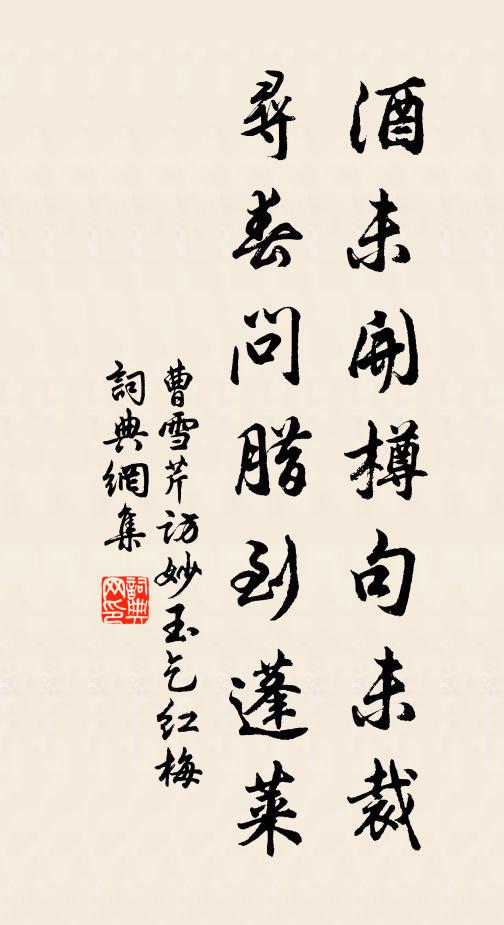 酒未開樽句未裁
尋春問腊到蓬萊
曹雪芹访妙玉乞红梅
詞典網集
詞典網印